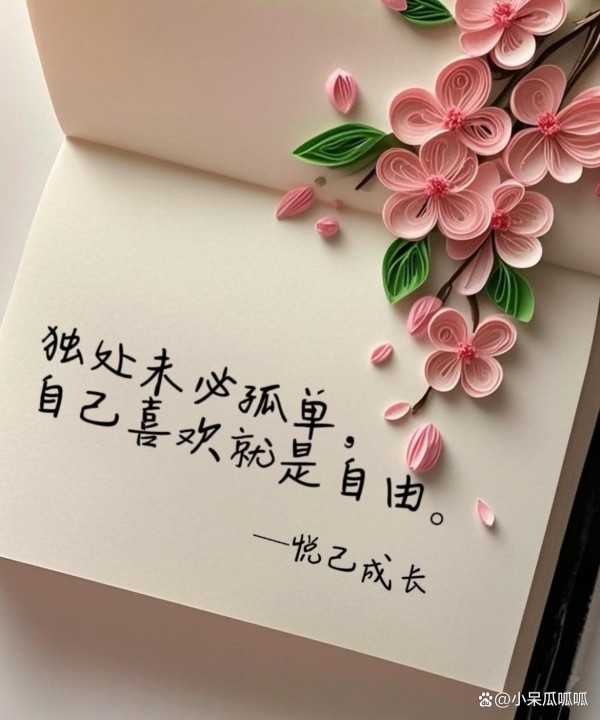 独处未必孤单，
自己喜欢就是自由。
——悦己成长
@小呆瓜呱呱